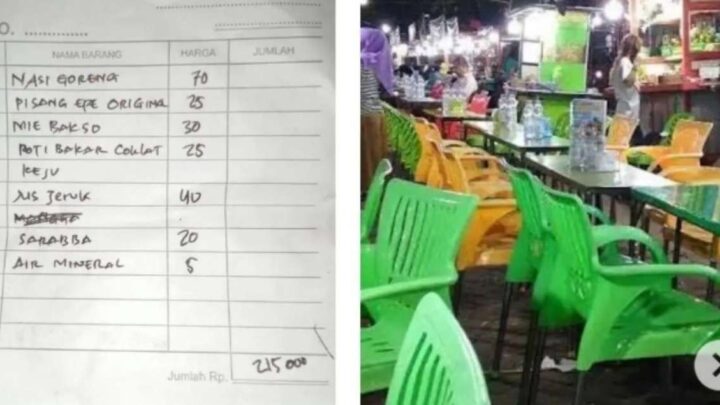 O. ..............
NAMA BARANG HARGA JUMLAH
NASI GORENG 70
PISANG EPE ORIGINAL 25
MIE BAKSO 30
ROTI BAKAR COKLAT 25
KEJU
JUS JERUK 40
SARABBA 20
AIR MINERAL 5
Jumlah Rp. 215000